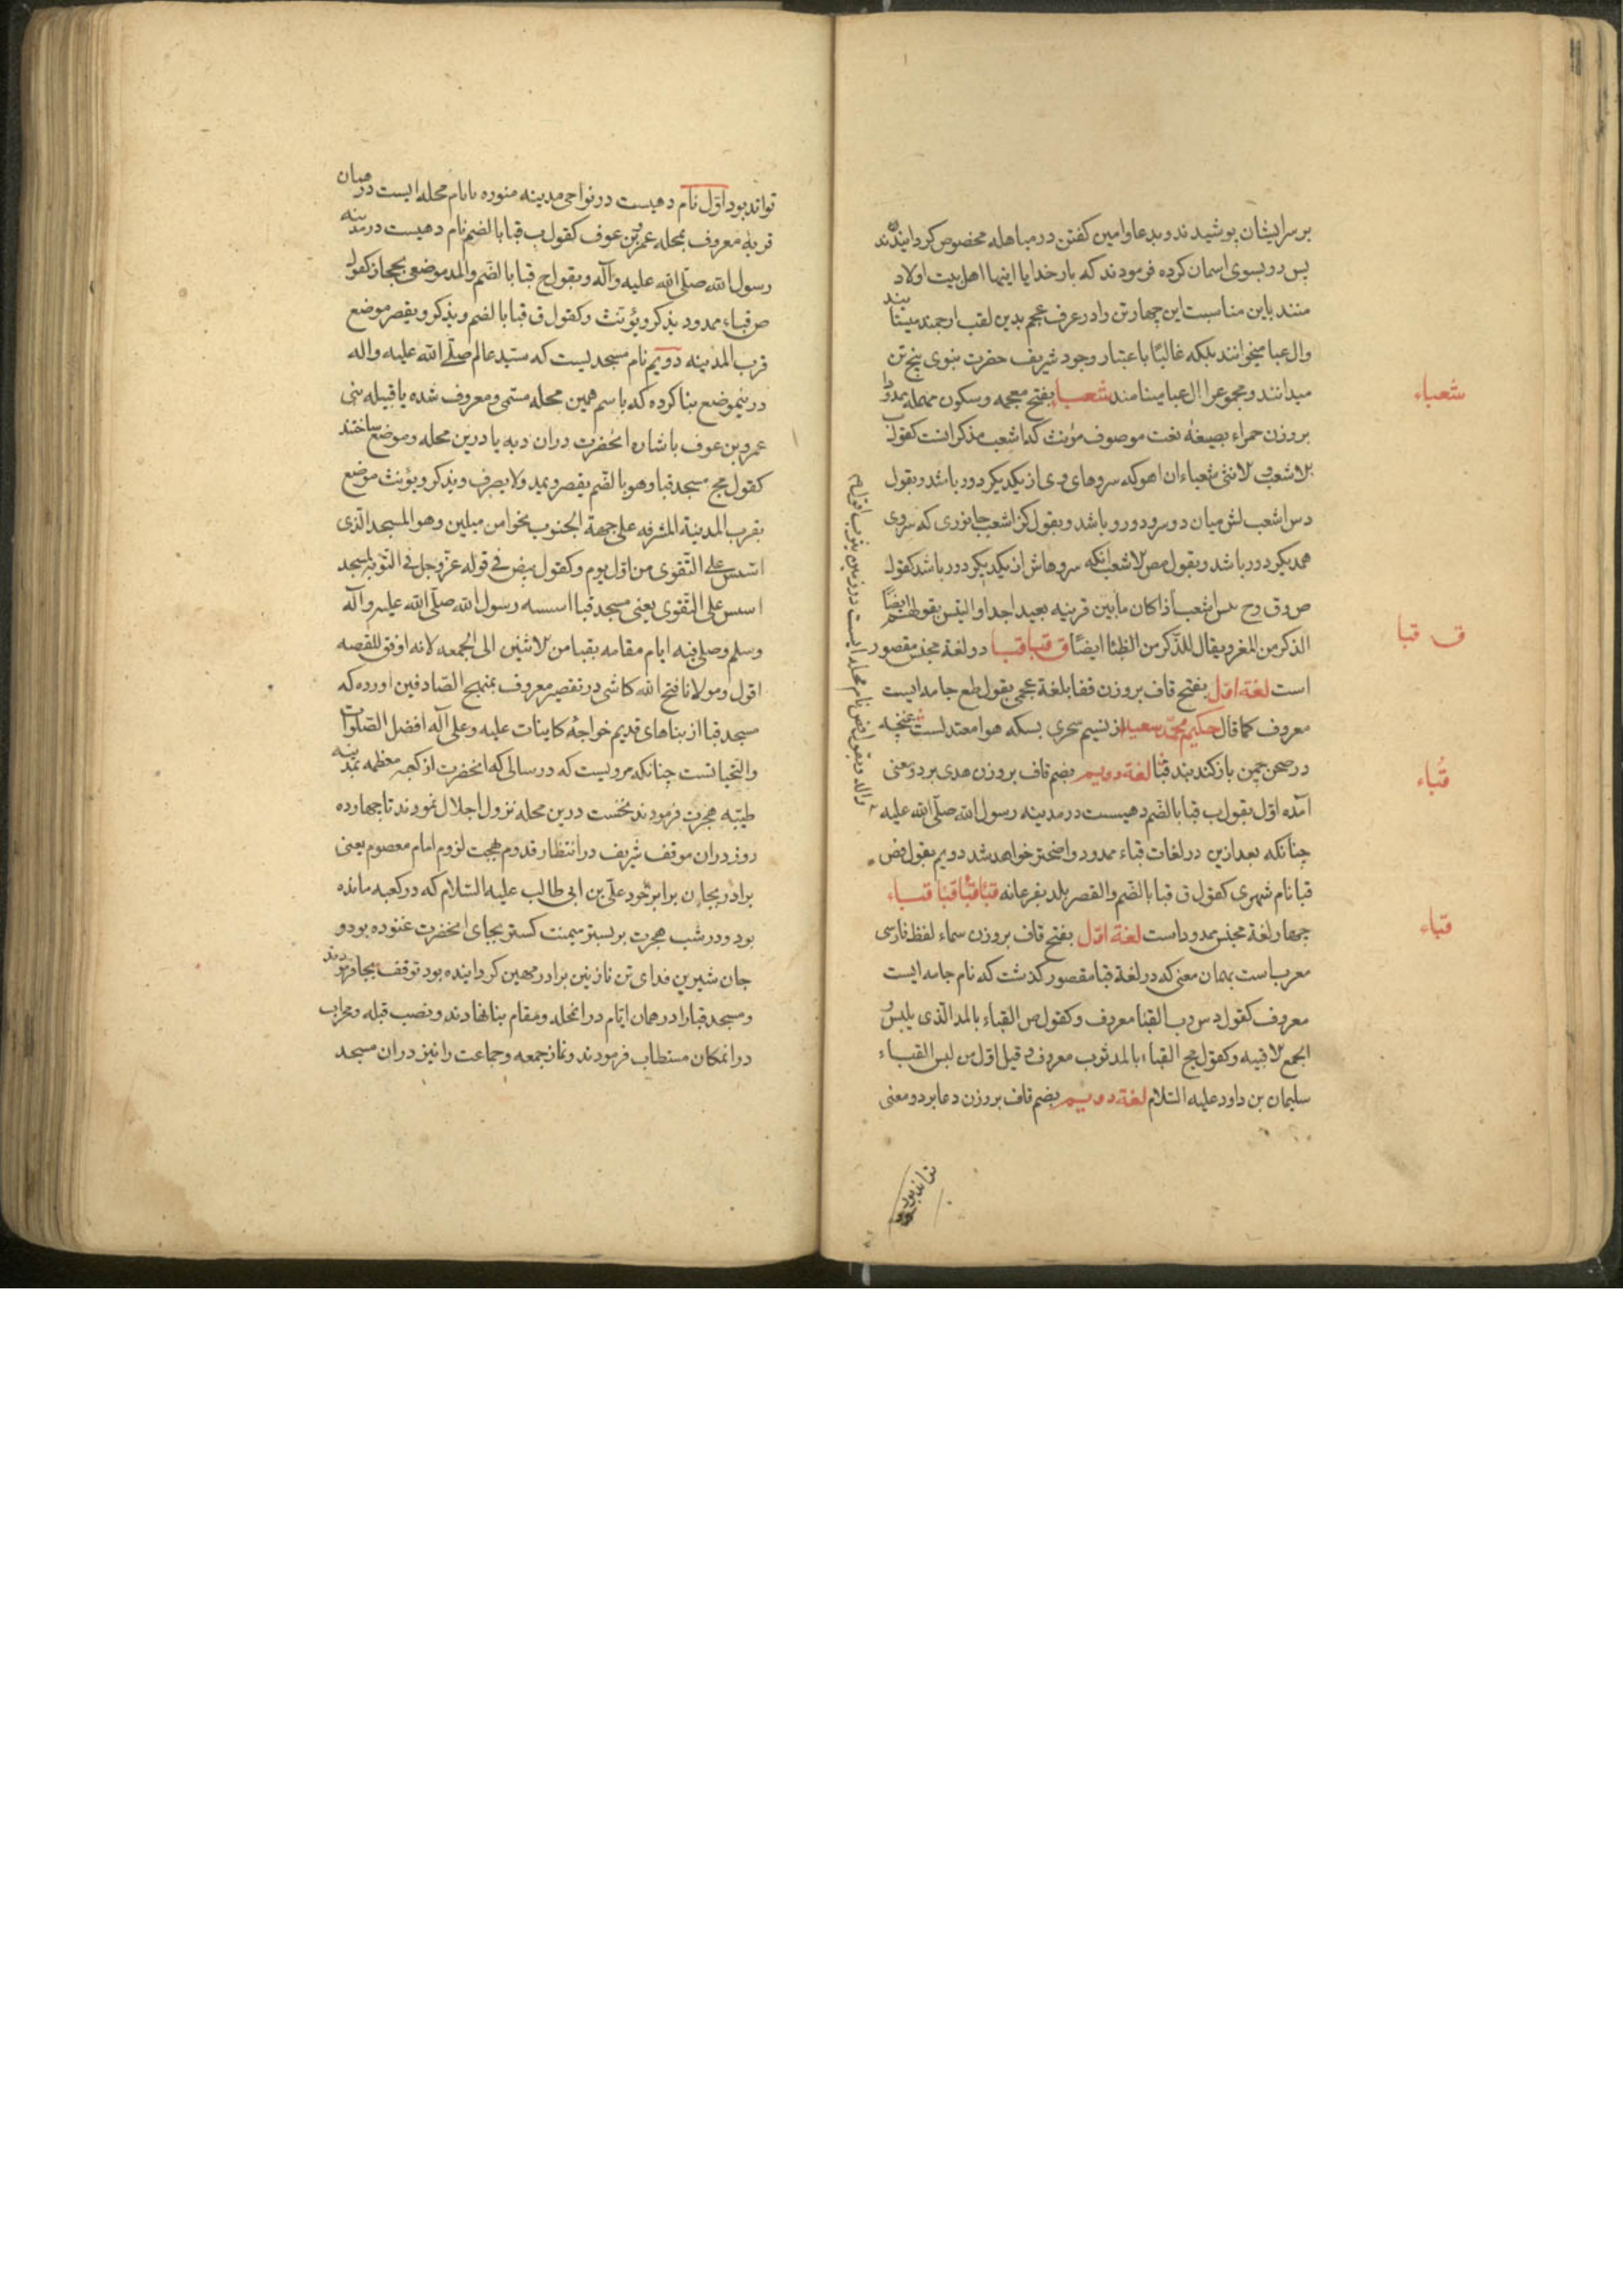 بر سر ایشان پوشیدند و بدعا و امین کفتن در مباهله مخصوص کردانیدند
پس رو بسوی اسمان کرده فرمودند که بار خدایا اینها اهل بیت اولاد
منند باین مناسبت این چهار تن را در عرف عجم بدین لقب ارجمند میستایند
وال عبا میخوانند بلکه غالبًا باعتبار وجود شریف حضرت نبوی پنج تن
میدانند و مجموع را ال عبا مینامند شعباء بفتح معجمه و سکون مهمله ممدودا
شعباء
بر وزن حمراء بصیغهٔ نعت موصوف مؤنث که اشعب مذکر انست کقول
الاشعب و الانثی شعباء ان اهو که سروهای وی از یکدیکر دور باشد و بقول
دس اشعب لش میان دو سرو دور و باشد و بقول کز اشعب جانوری که سروی
همدیکر دور باشد و بقول مص الاشعب انکه سروهاش از یکدیکر دور باشد کقول
ص و ق و ح تیس اشعب اذا کان مابین قرنیه بعید اجدا و التیس بقولهم ایضًا
الذکر من المغر و یقال للذکر من الظبا ایضًا ق قبا قبا دو لغة مجنس مقصور
ق قبا
است لغة اول بفتح قاف بر وزن قفا بلغة عجمی بقول طع جامه ایست
معروف کما قال حکیم محمد سعید از نسیم سحری بسکه هوا معتدلست غنچه
در صحن چمن باز کند بند قبا لغة دویم بضم قاف بر وزن هدی بر دو معنی
قُباء
آمده اول بقول ب قبا بالضم دهیست در مدینه رسول الله صلی الله علیه
واله و بقول فض نام محله ایست در زمین یثرب اقول
چنانکه بعد ازین در لغات قباء ممدود واضحتر خواهد شد دویم بقول فض
قبا نام شهری کقول ق قبا بالضم و القصر بلد بفرغانه قبا قبا قبا قباء
چهار لغة مجنس ممدود است لغة اول بفتح قاف بر وزن سماء لفظ فارسی
قباء
معرب است بهمان معنی که در لغة قبا مقصور کذشت که نام جامه ایست
معروف کقول دس و ب القبا معروف و کقول ص القباء بالمد الذی یلبس و
الجمع الاقبیه و کقول مج القباء بالمد ثوب معروف و قیل اول من لبس القباء
سلیمان بن داود علیه السلام لغة دویم بضم قاف بر وزن دعا بر دو معنی
تواند بود
تواند بود اول نام دهیست در نواحی مدینه منوره یا نام محله ایست در میان
قریهٔ معروف بمحله عمرو بن عوف کقول ب قبا بالضم نام دهیست در مدینه
رسول الله صلی الله علیه وآله و بقول ح قبا بالضم والمد موضعی بحجاز کقول
ص قباء ممدود یذکر و یؤنث و کقول ق قبا بالضم و یذکر و یقصر موضع
قرب المدینه دویم نام مسجدیست که سید عالم صلی الله علیه واله
درینموضع بنا کرده که باسم همین محله مسمی و معروف شده یا قبیله بنی
عمرو بن عوف باشاره انحضرت دران دیه یا درین محله و موضع ساختند
کقول مج مسجد قبا وهو بالضم یقصر و یمد ولا یصرف و یذکر و یؤنث موضع
بقرب المدینة المشرفه علی جهة الجنوب نحوا من میلین وهو المسجد الذی
اسس علی التقوی من اول یوم و کقول بیض فی قوله عز وجل فی التوبه لمسجد
اسس علی التقوی یعنی مسجد قبا اسسه رسول الله صلی الله علیه وآله
وسلم وصلی فیه ایام مقامه بقبا من الاثنین الی الجمعه لانه اوفق للقصه
اقول و مولانا فتح الله کاشی در تفسیر معروف بمنهج الصادقین اورده که
مسجد قبا از بناهای قدیم خواجهٔ کاینات علیه وعلی آله افضل الصلوات
والتحیاتست چنانکه مرویست که در سالی که انحضرت از کعبه معظمه بمدینه
طیبه هجرت فرمودند نخست درین محله نزول اجلال نمودند تا چهارده
روز دران موقف شریف در انتظار قدوم بهجت لزوم امام معصوم یعنی
برادر بجان برابر خود علی بن ابی طالب علیه السلام که در کعبه مانده
بود و در شب هجرت بر بستر میمنت کستر بجای انحضرت غنوده بود و
جان شیرین فدای تن نازنین برادر مهین کردانیده بود توقف بجا فرمودند
و مسجد قبا را در همان ایام در انمحله و مقام بنا نهادند و نصب قبله و محراب
در انمکان مستطاب فرمودند و نماز جمعه و جماعت را نیز دران مسجد